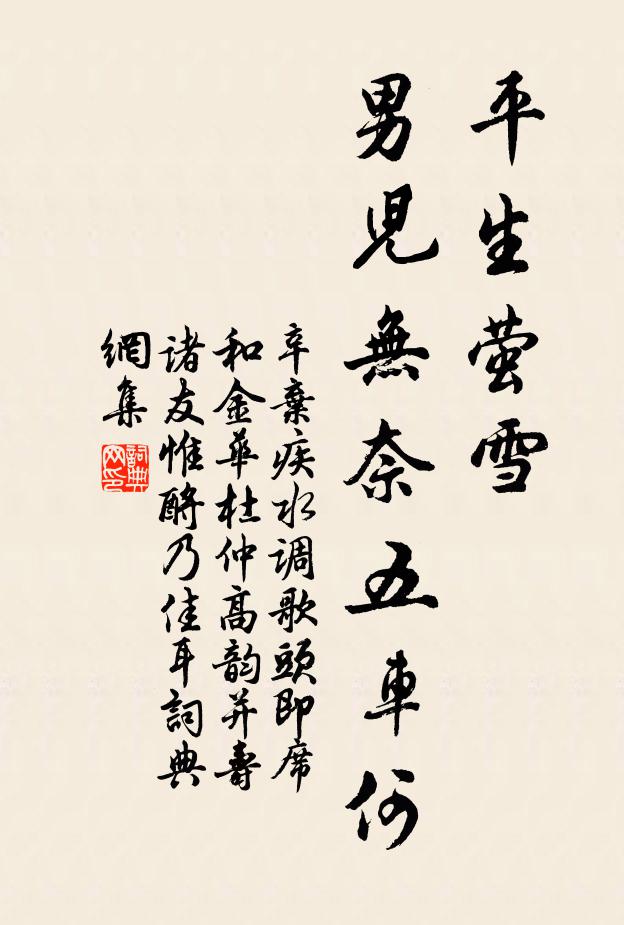 平生萤雪
男児無奈五車何
辛棄疾水调歌頭即席
和金華杜仲高韵并壽
诸友惟酹乃佳耳詞典
網集
詞典
网印